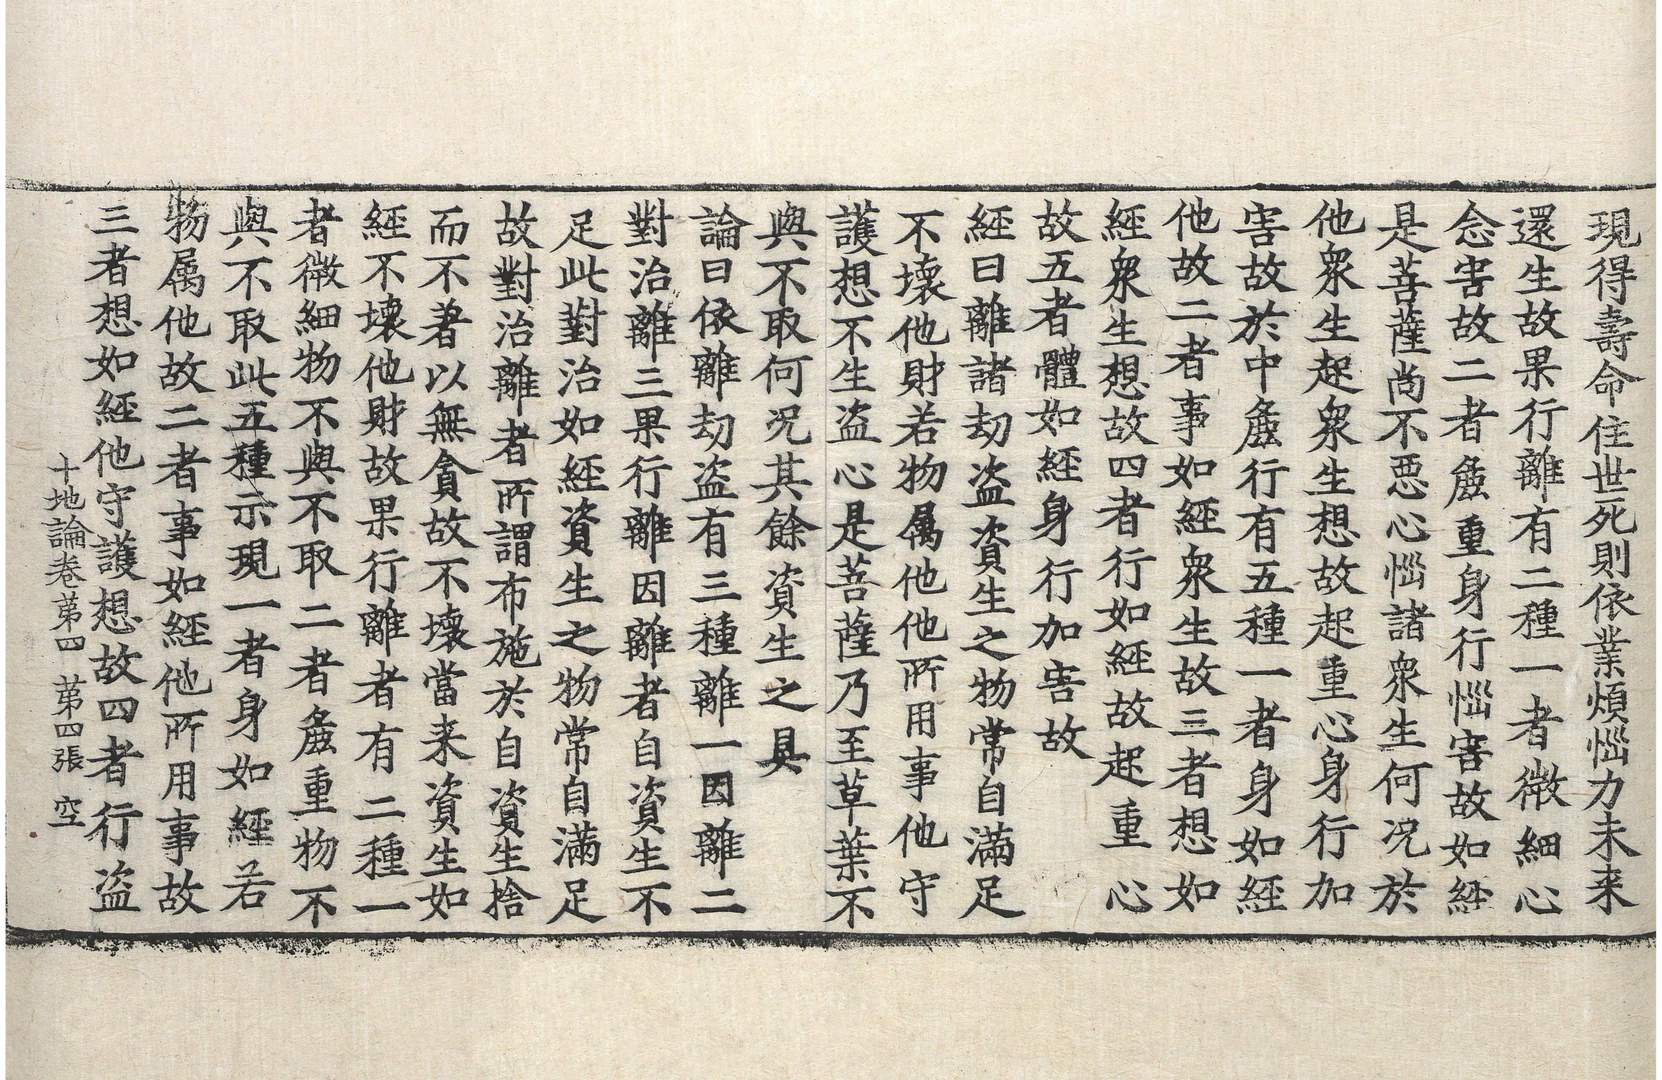 現得壽命住世死則依業煩惱力未来
還生故果行離有二種一者微細心
念害故二者麁重身行惱害故如經
是菩薩尚不惡心惱諸衆生何况於
他衆生起衆生想故起重心身行加
害故於中麁行有五種一者身如經
他故二者事如經衆生故三者想如
經衆生想故四者行如經故起重心
故五者體如經身行加害故
經曰離諸劫盗資生之物常自滿足
不壞他財若物属他他所用事他守
護想不生盗心是菩薩乃至草葉不
與不取何况其餘資生之具
論曰依離劫盗有三種離一因離二
對治離三果行離因離者自資生不
足此對治如經資生之物常自滿足
故對治離者所謂布施於自資生捨
而不著以無貪故不壞當来資生如
經不壞他財故果行離者有二種一
者微細物不與不取二者麁重物不
與不取此五種示現一者身如經若
物属他故二者事如經他所用事故
三者想如經他守護想故四者行盗
十地論卷苐四 苐四張 空